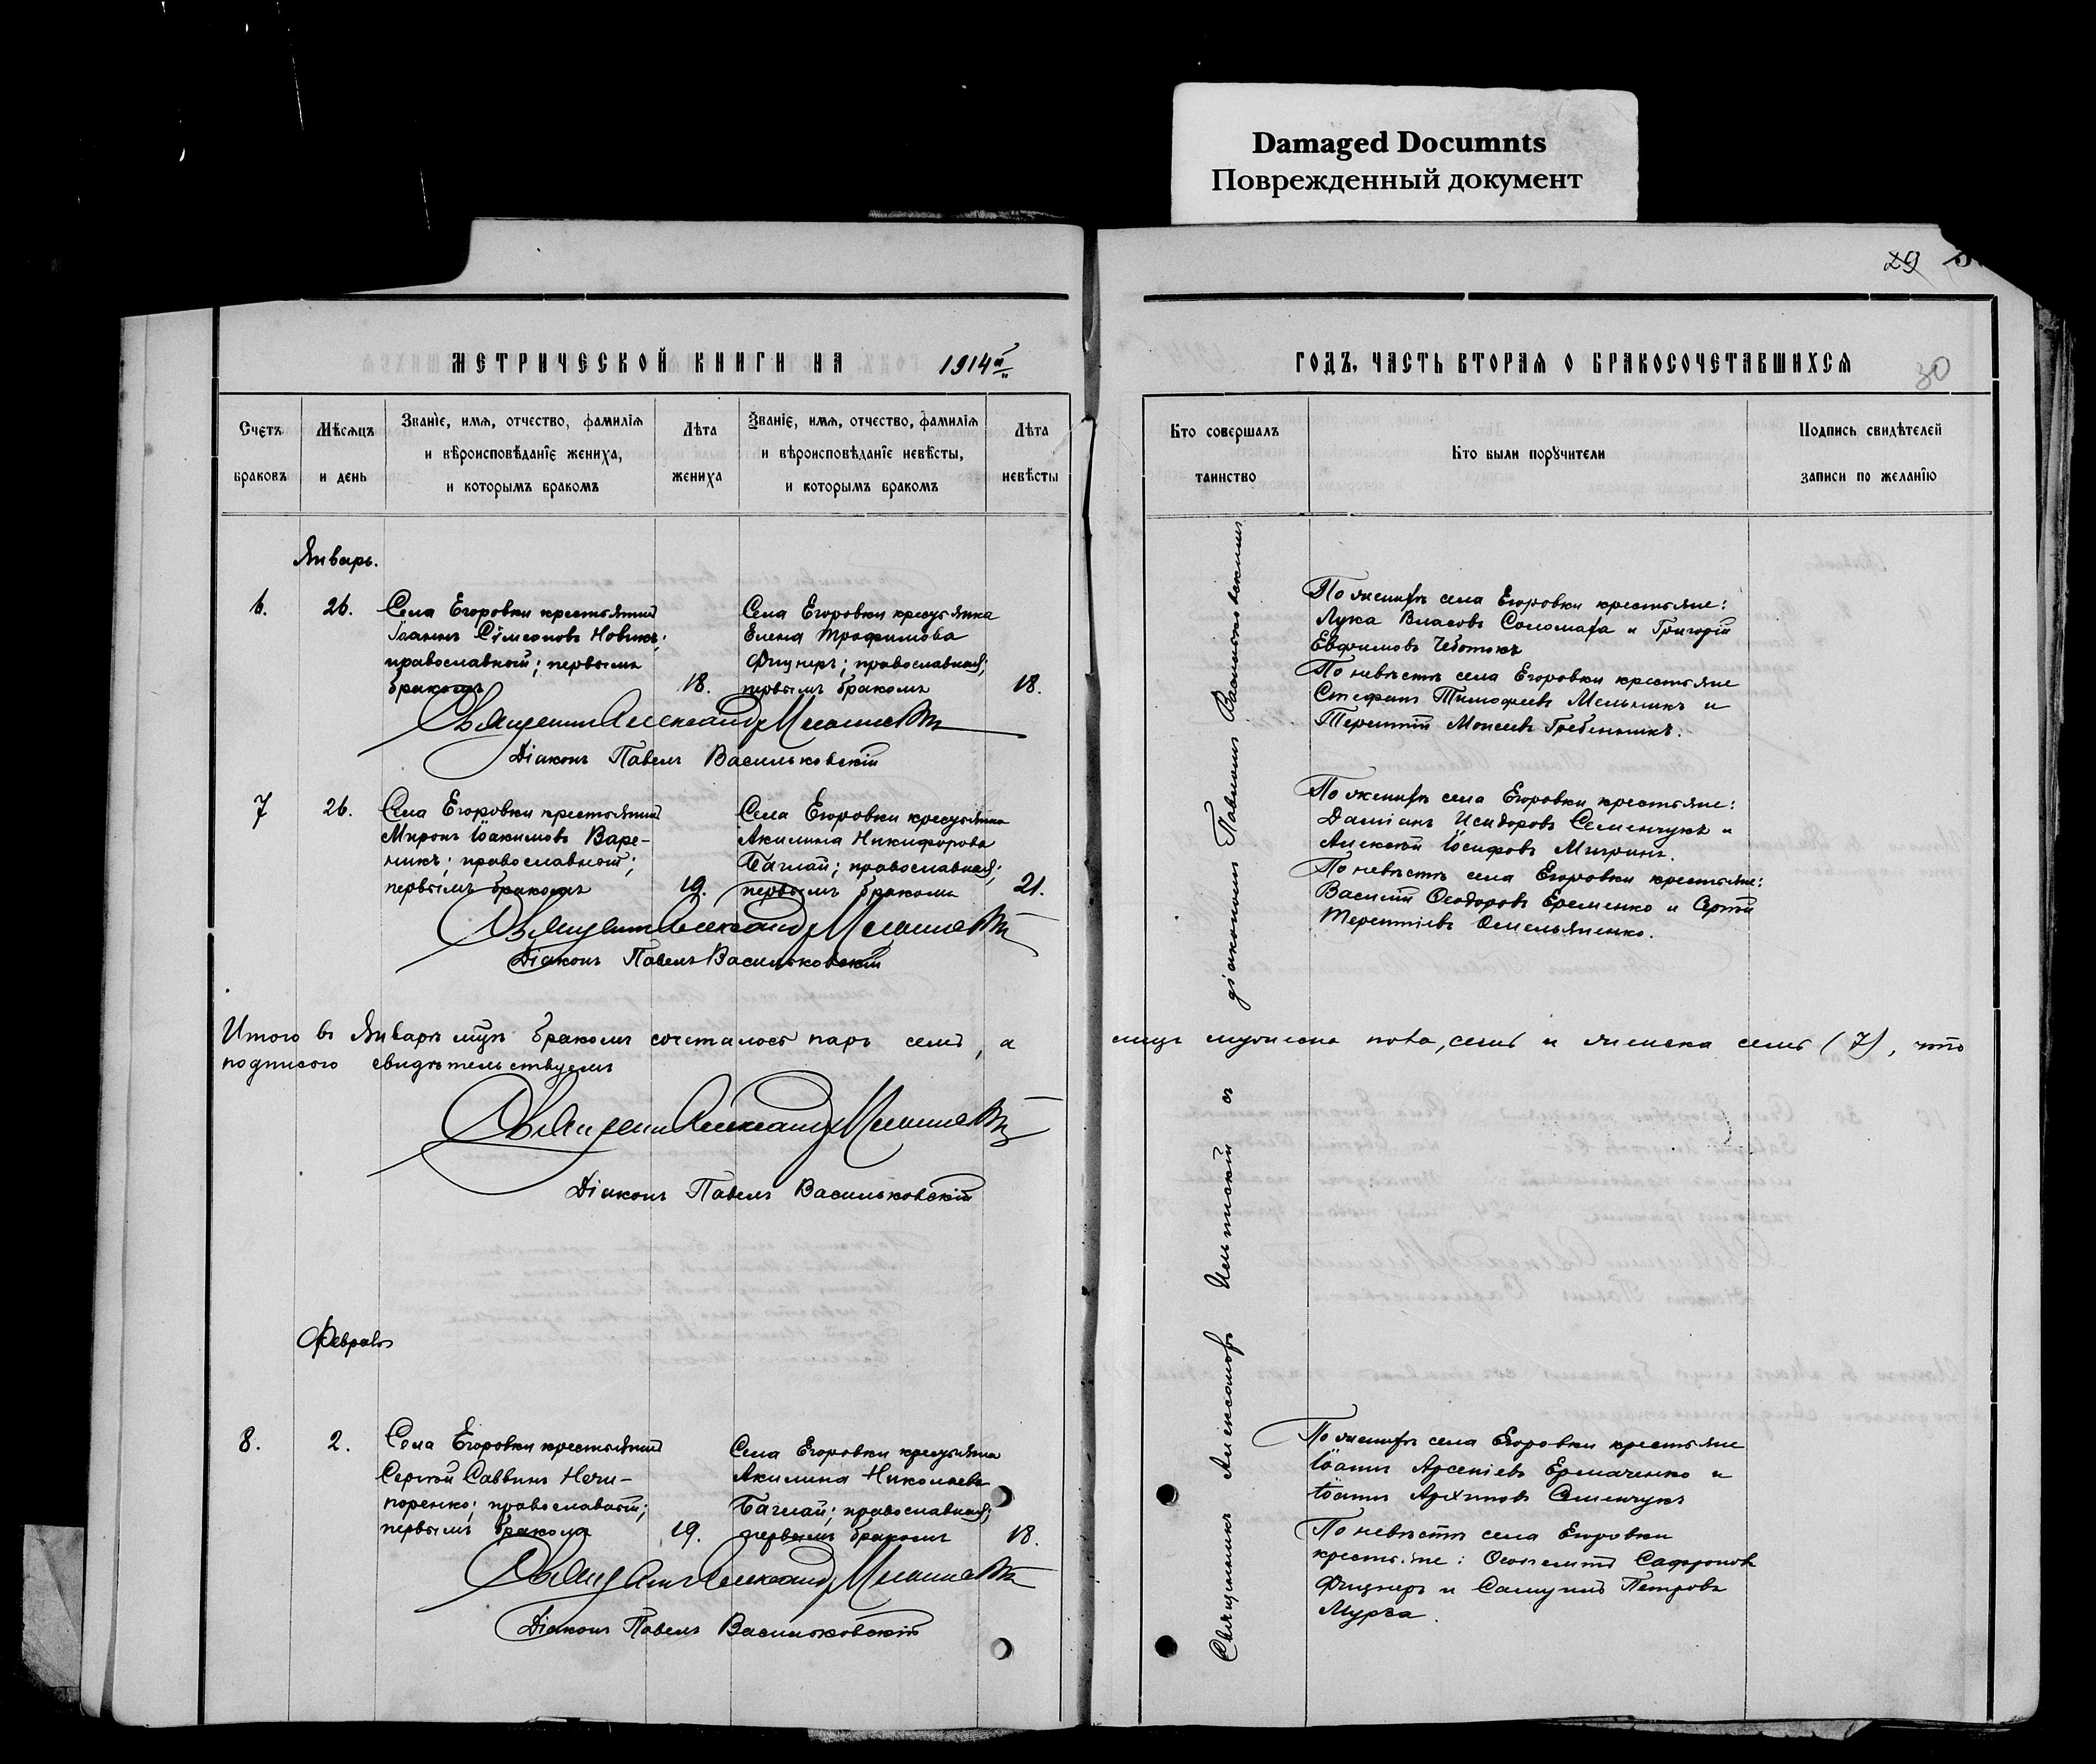 Damaged Documnts
Поврежденный документ
29
30
МЕТРИЧЕСКОЙ КНИГИ НА 1914й
ГОДЪ, ЧАСТЬ ВТОРАЯ О БРАКОСОЧЕТАВШИХСЯ
Счетъ браковъ
Мѣсяцъ и день
Званіе, имя, отчество, фамилія
и вѣроисповѣданіе жениха,
и которымъ бракомъ
Лѣта жениха
Званіе, имя, отчество, фамилія
и вѣроисповѣданіе невѣсты,
и которымъ бракомъ
Лѣта невѣсты
Кто совершалъ таинство
Кто были поручители
Подпись свидѣтелей
записи по желанію
Январь.
6.
26.
Села Егоровки крестьянинъ
Іоаннъ Сѵмеоновъ Новикъ;
православный; первымъ
бракомъ
18.
Села Егоровки крестьянка
Елена Трофимова
Фицнеръ; православная;
первымъ бракомъ
18.
Священникъ Александръ
Діаконъ Павелъ Васильковскій
По женихѣ села Егоровки крестьяне:
Лука Власовъ Соломаха и Григорій
Евфимовъ Чеботокъ
По невѣстѣ села Егоровки крестьяне
Стефанъ Тимофеевъ Мельникъ и
Терентій Моисеевъ Гребенникъ.
7
26.
Села Егоровки крестьянинъ
Миронъ Іоакимовъ Варе-
никъ; православный;
первымъ бракомъ
19.
Села Егоровки крестьянка
Акилина Никифорова
Баглай; православная;
первымъ бракомъ
21.
Священникъ Александръ
Діаконъ Павелъ Васильковскій
По женихѣ села Егоровки крестьяне:
Даміанъ Исидоровъ Семенчукъ и
Алексѣй Іосифовъ
По невѣстѣ села Егоровки крестьяне:
Василій Ѳеодоровъ Еременко и Сергѣй
Терентіевъ Омельяненко.
Итого въ Январѣ мцѣ бракомъ сочеталось паръ семь, а
лицъ мужеска пола, семь и женска семь (7), что
подписью свидѣтельствуемъ
Священникъ Александръ
Діаконъ Павелъ Васильковскій
Февраль
8.
2.
Села Егоровки крестьянинъ
Сергѣй Саввинъ Нечи-
поренко; православный;
первымъ бракомъ
19.
Села Егоровки крестьянка
Акилина Николаева
Баглай; православная;
первымъ бракомъ
18.
Священникъ Александръ
Діаконъ Павелъ Васильковскій
По женихѣ села Егоровки крестьяне
Іоаннъ Арсеніевъ Ермаченко и
Іоаннъ Архиповъ Семенчукъ
По невѣстѣ села Егоровки
крестьяне: Сафроновъ
Фицнеръ и Самуилъ Петровъ
Мурза.
Священникъ Александръ съ діакономъ Павломъ Васильковскимъ